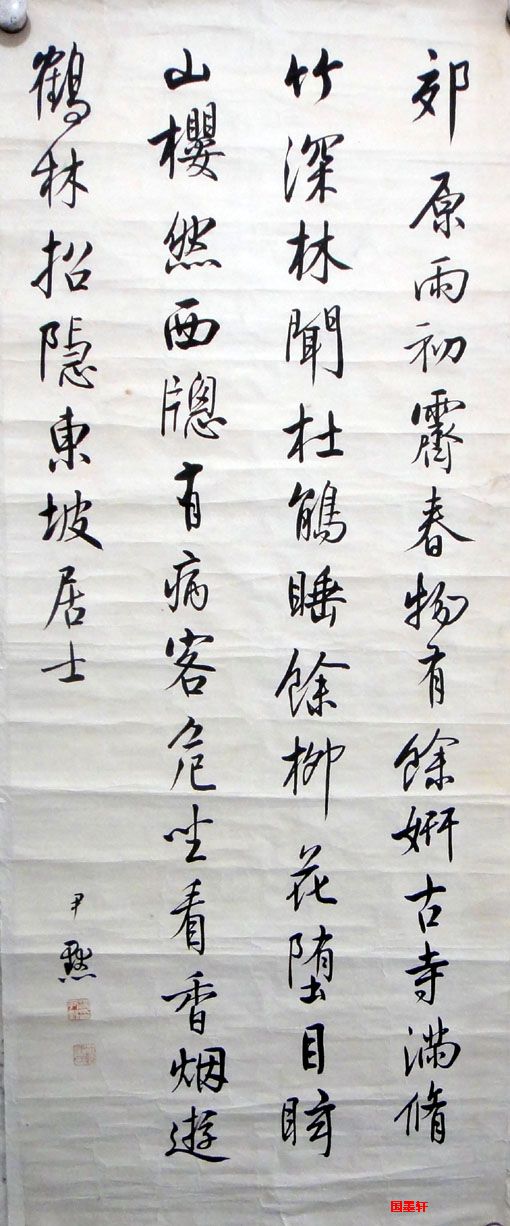 郊原雨初霽春物有餘妍古寺滿脩
竹深林聞杜鵑睡餘柳花堕目眩
山櫻然西牕有病客危坐看香烟遊
鶴林招隠東坡居士
尹默
国墨轩